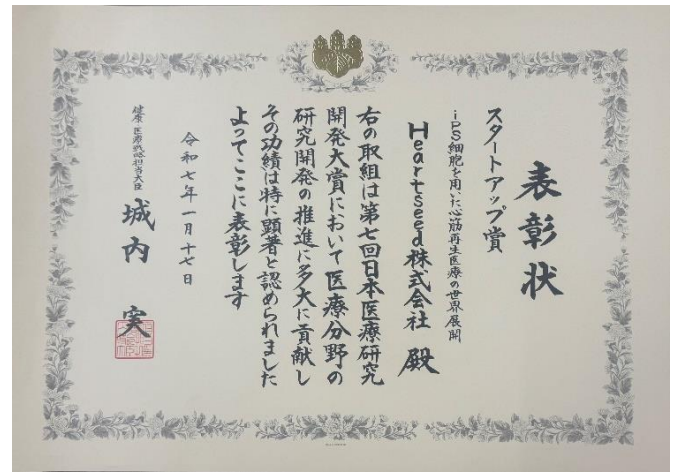 表彰状
スタートアップ賞
iPS細胞を用いた心筋再生医療の世界展開
Heartseed株式会社 殿
右の取組は第七回日本医療研究
開発大賞において医療分野の
研究開発の推進に多大に貢献し
その功績は特に顕著と認められました
よってここに表彰します
令和七年一月十七日
健康・医療戦略担当大臣 城内 実